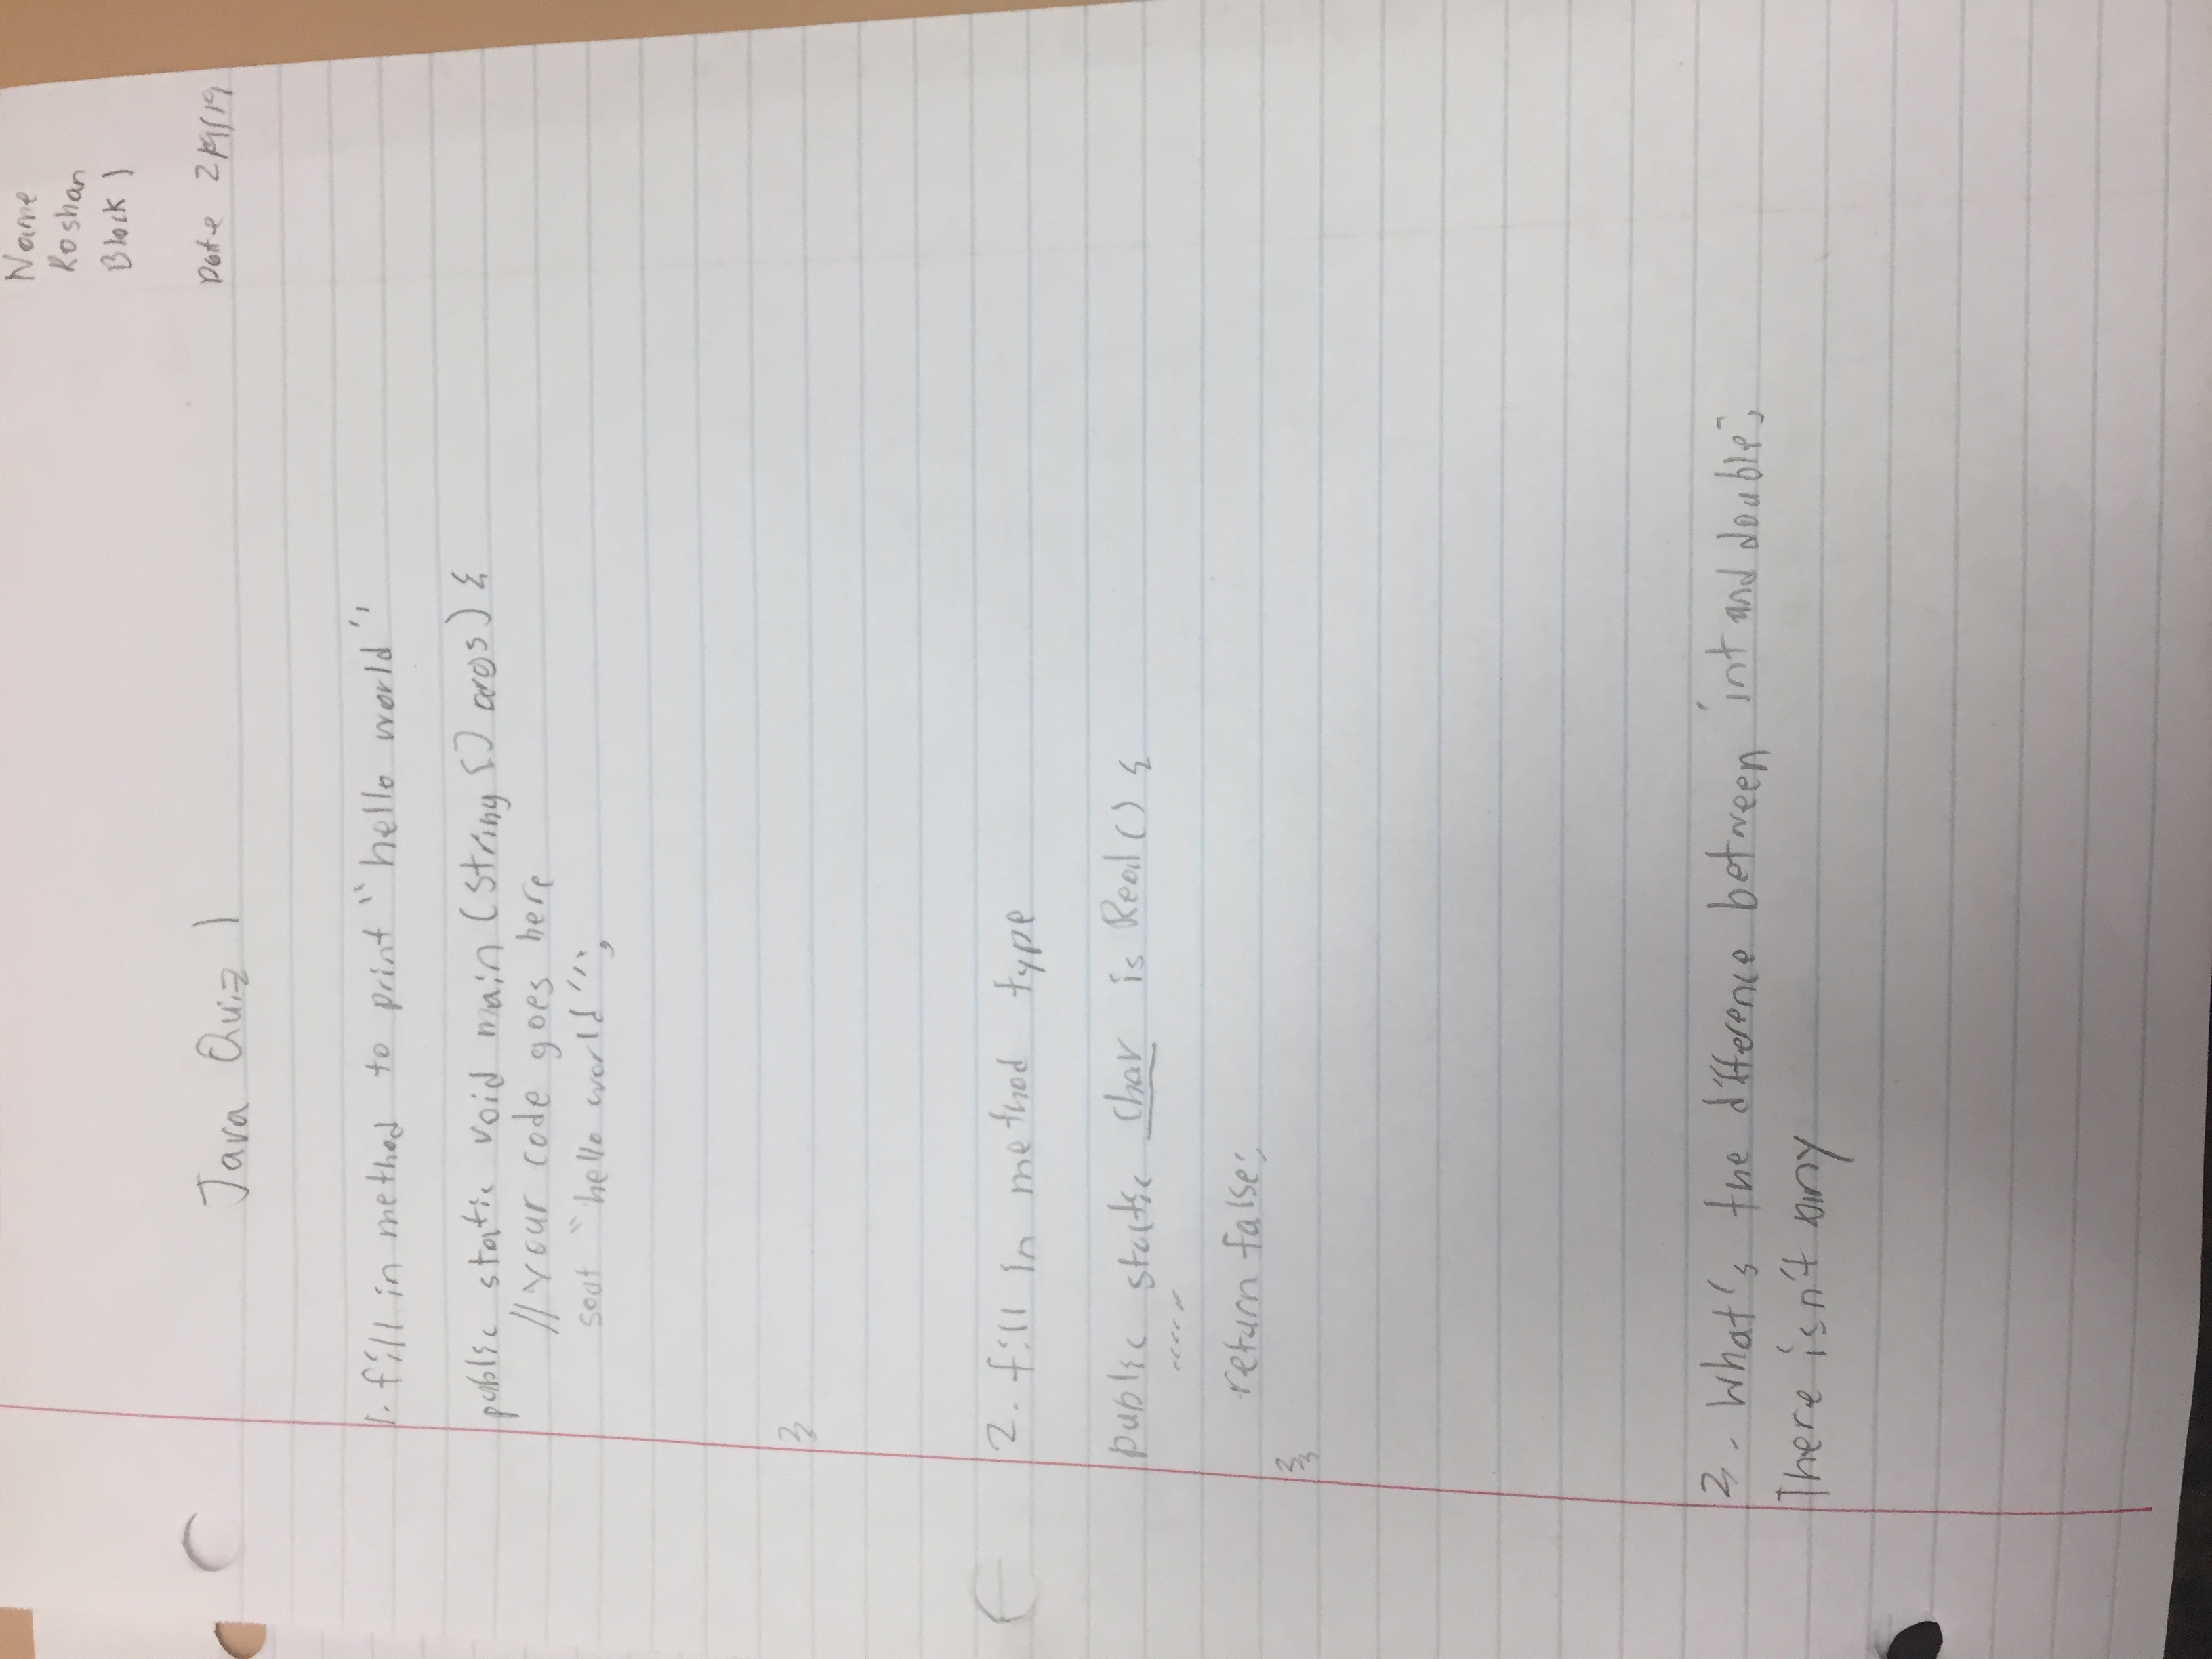 Name
Roshan
Block 1
Date 2/9/19
Java Quiz 1
1. fill in method to print "hello world"
public static void main (String [] args) {
//Your code goes here
sout "hello world";
}
2. fill in method type
public static char is Real () {
return false;
}
3. What's the difference between int and double;
There isn't any